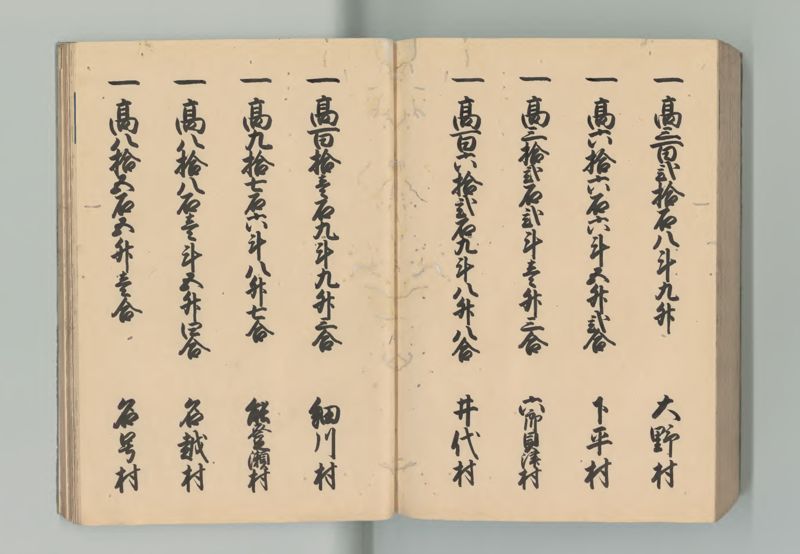 一高三百弐拾石八斗九升 大野村
一高六拾六石六斗五升弐合 下平村
一高三拾弐石弐斗壱升三合 村
一高百六拾弐石九斗八升八合 井代村
一高百拾壱石九斗九升三合 細川村
一高九拾七石六斗八升七合 能登瀬村
一高八拾八石壱斗五升四合 名越村
一高八拾五石五升壱合 名号村